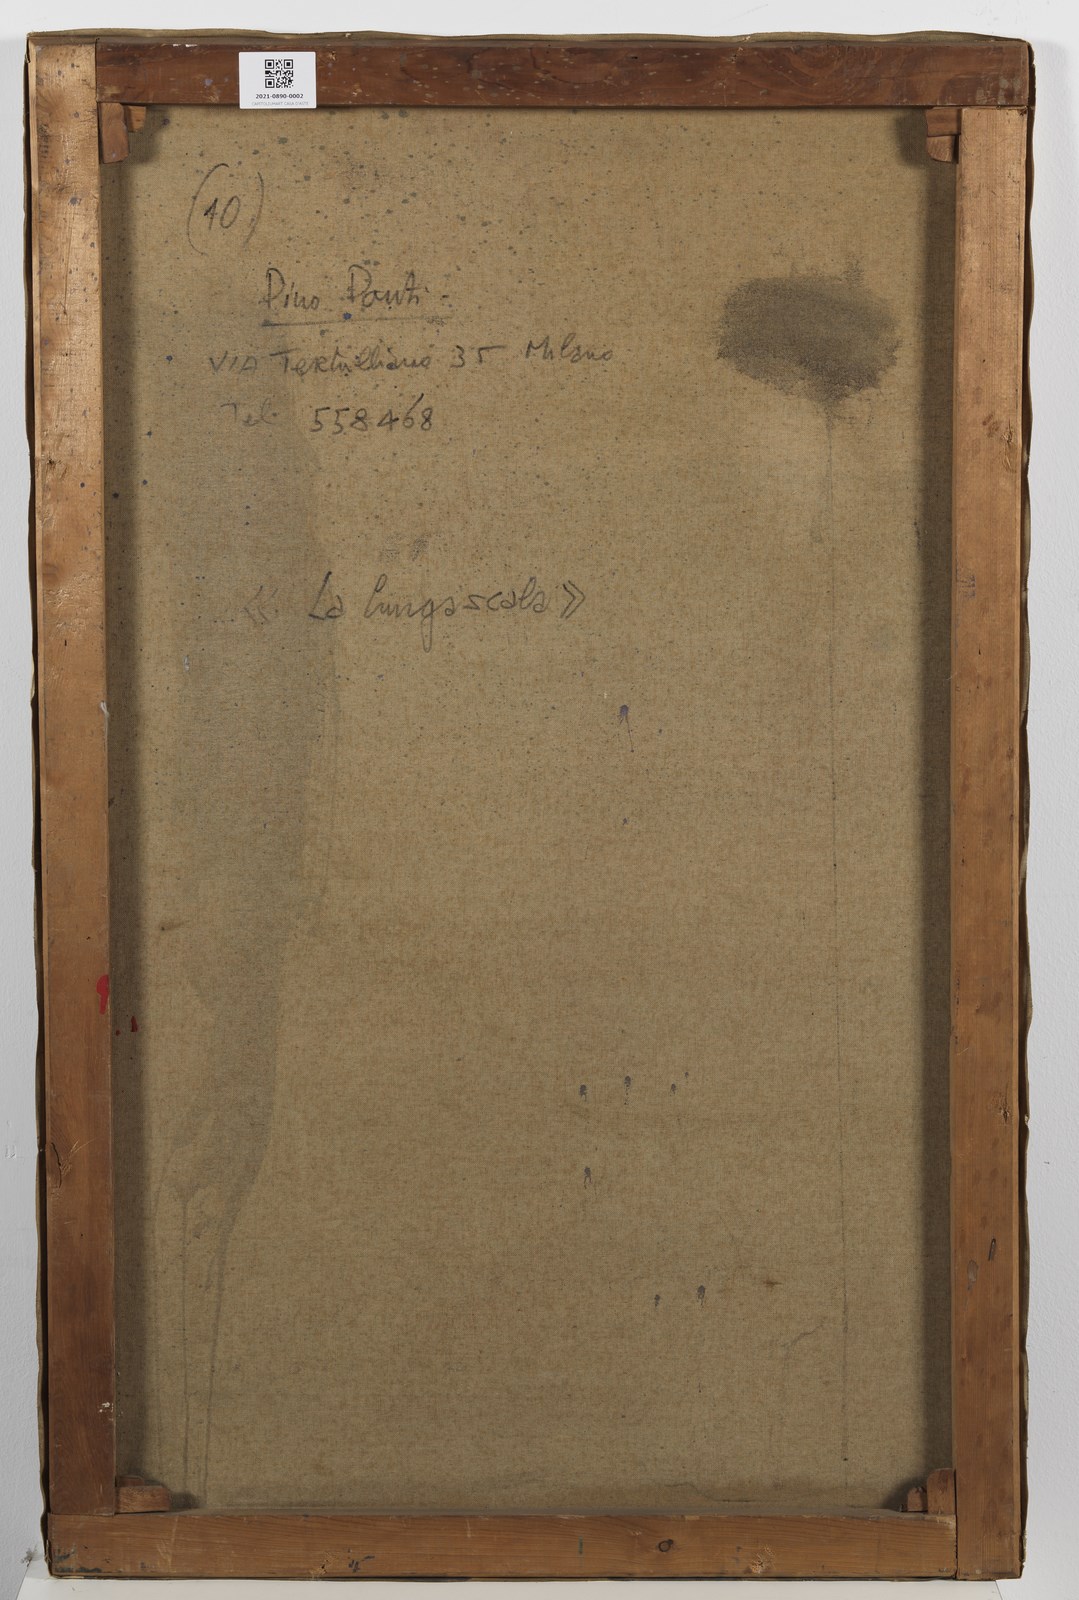 2021-0890-0002
(10)
Pino Ponti
VIA Tertulliano 35 Milano
Tel. 558468
« La lunga scala »